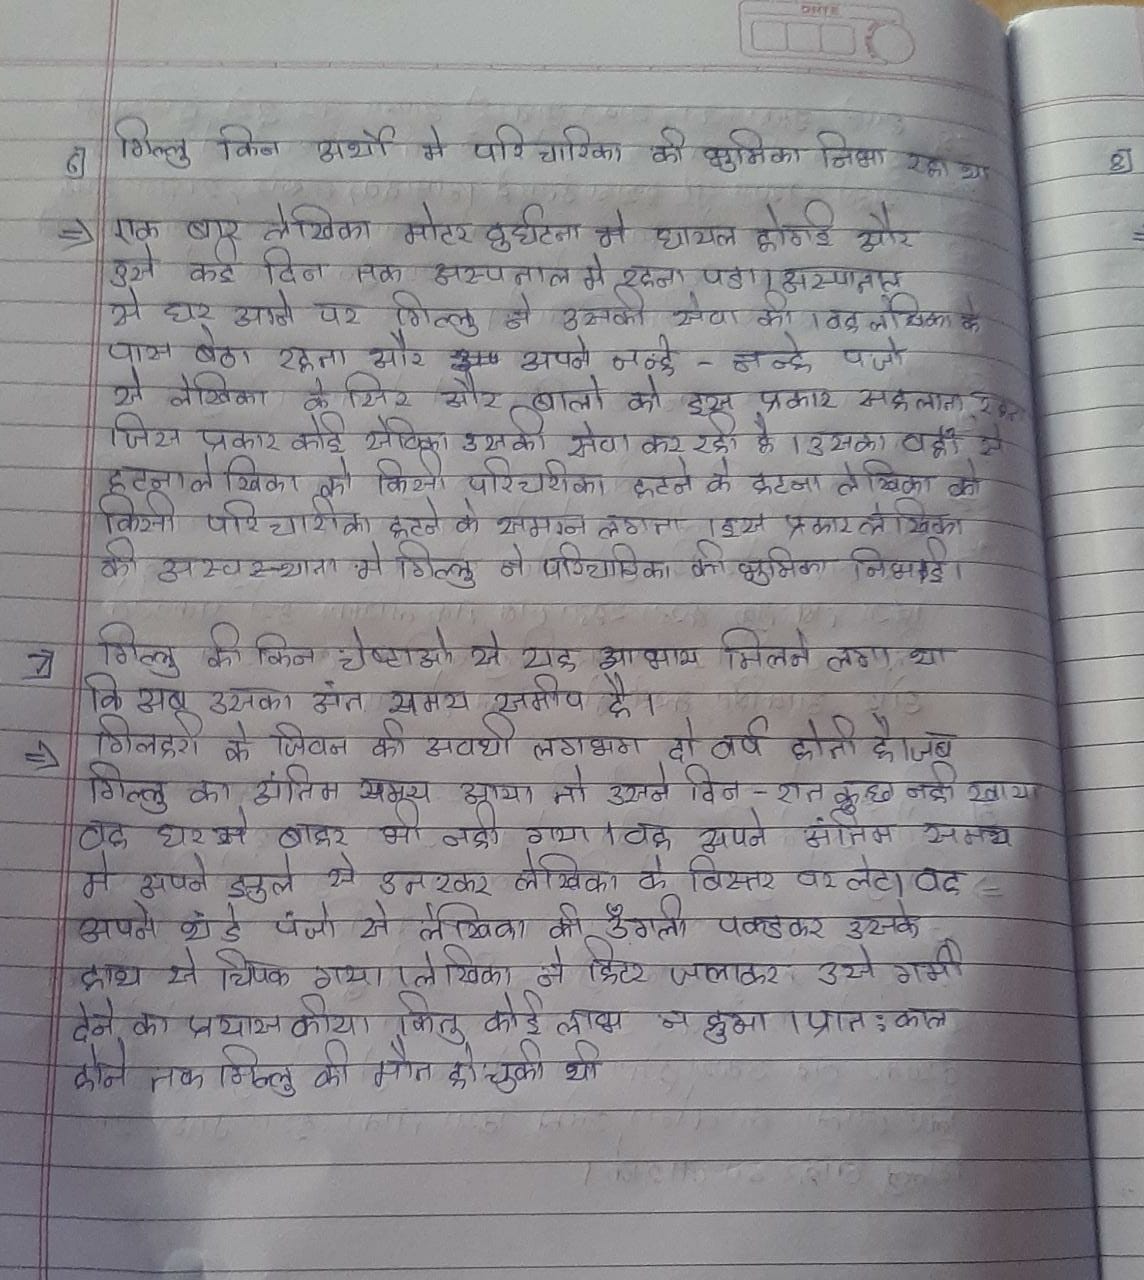 DATE
६] गिल्लु किन अर्थो मे परिचारिका की भुमिका निभा रहा था
८]
⇒ एक बार लेखिका मोटर दुर्घटना मे घायल होगई और
उसे कई दिन तक अस्पताल मे रहना पडा। अस्पाताल
से घर आने पर गिल्लु ने उसकी सेवा की। वह लेखिका के
पास बेठा रहता और अपने नन्हे - नन्हे पंजो
से लेखिका के सिर और बालो को इस प्रकार सहलाता रहता
जिस प्रकार कोई सेविका उसकी सेवा कर रही है। उसका वहाँ से
हटना लेखिका को किसी परिचरीका हटने के हटना लेखिका को
किसी परिचारीका हटने के समान लगता। इस प्रकार लेखिका
की अस्वस्थाता मे गिल्लु ने परिचारिका की भुमिका निभाई।
७] गिल्लु की किन चेष्टाओ से यह आभास मिलने लगा था
कि अब उसका अंत समय समीप है।
⇒ गिलहरी के जिवन की अवधी लगभग दो वर्ष होती है। जब
गिल्लु का अंतिम समय आया तो उसने दिन - रात कुछ नही खाया
वह घर से बाहर भी नही गया। वह अपने अंतिम समय
मे अपने झुले से उतरकर लेखिका के बिस्तर पर लेटा वह
अपने थंडे पंजो से लेखिका की उँगली पकडकर उसके
हाथ से चिपक गया। लेखिका ने हिटर जलाकर उसे गर्मी
देने का प्रयास कीया। किंतु कोई लाभ न हुआ। प्रात: काल
होने तक गिल्लु की मौत हो चुकी थी